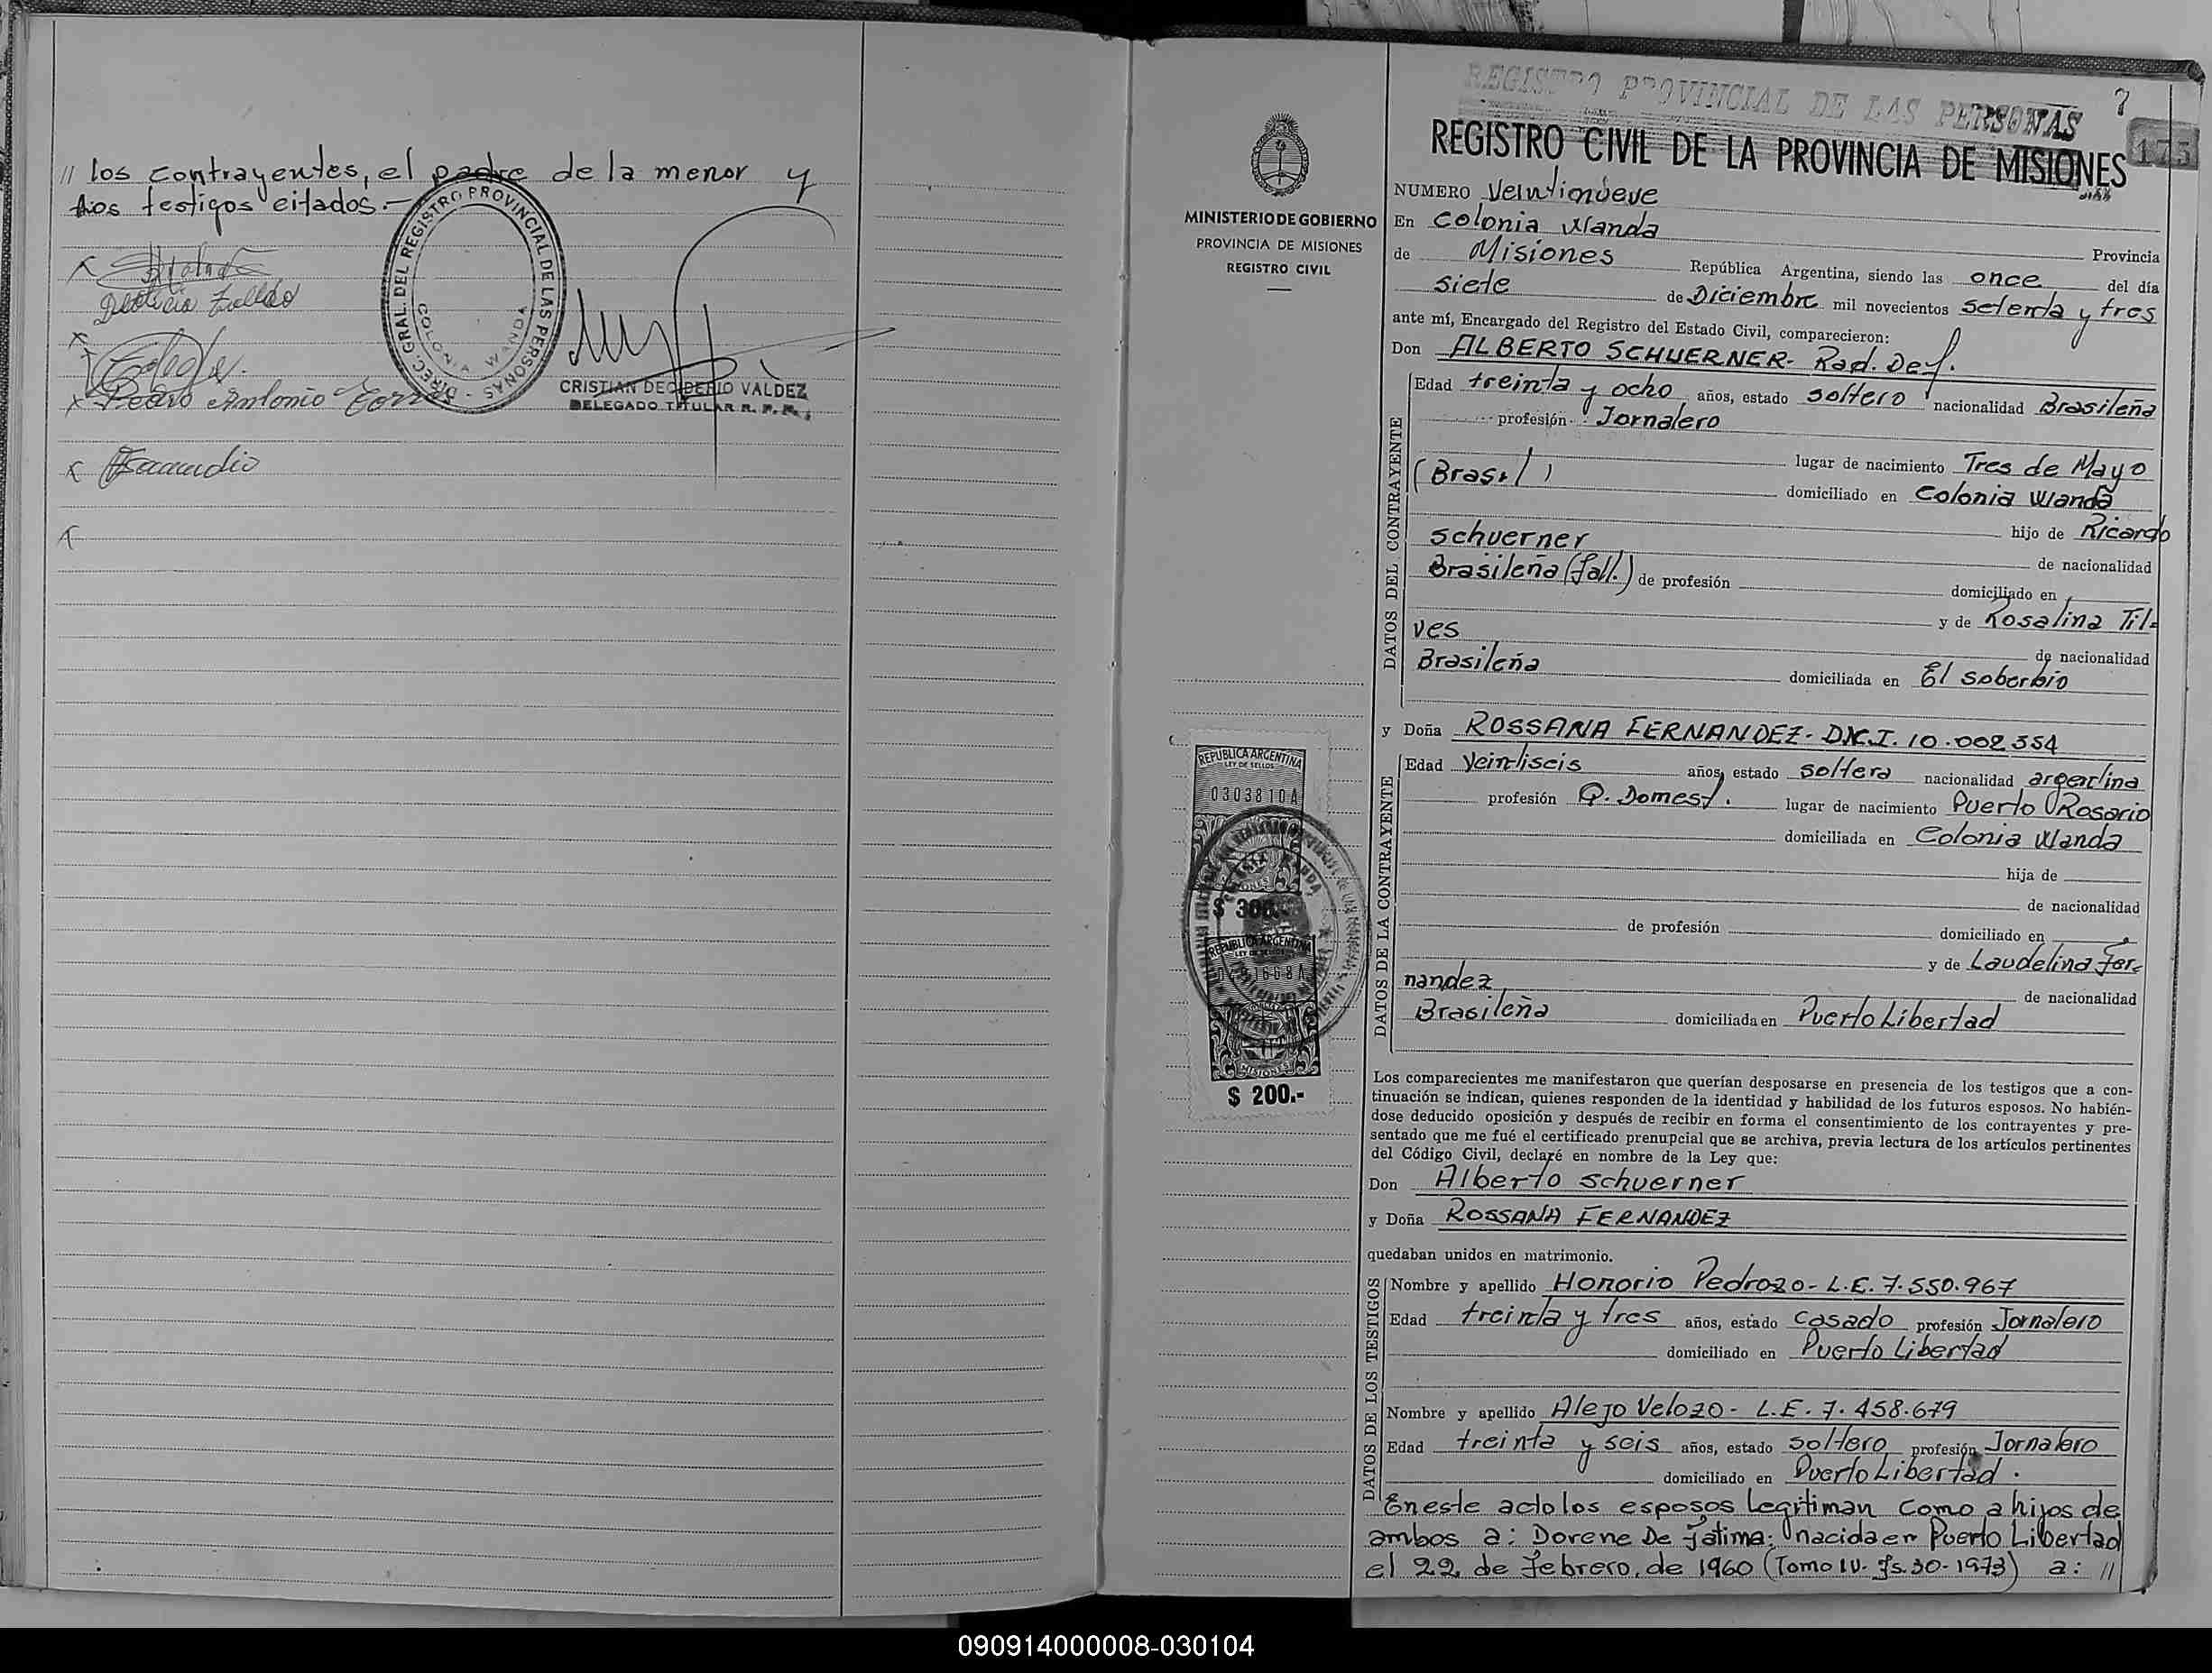 // los contrayentes, el padre de la menor y
los testigos citados.-
DIREC. GRAL. DEL REGISTRO PROVINCIAL DE LAS PERSONAS
COLONIA WANDA
Pedro Antonio
CRISTIAN DECIDERIO VALDEZ
DELEGADO TITULAR R. P. P.
REGISTRO PROVINCIAL DE LAS PERSONAS
7
175
REGISTRO CIVIL DE LA PROVINCIA DE MISIONES
MINISTERIO DE GOBIERNO
PROVINCIA DE MISIONES
REGISTRO CIVIL
NUMERO Veintinueve
En Colonia Wanda
Provincia
de Misiones República Argentina, siendo las once del día
siete de Diciembre mil novecientos setenta y tres
ante mí, Encargado del Registro del Estado Civil, comparecieron:
Don ALBERTO SCHUERNER- Rad. Def.
DATOS DEL CONTRAYENTE
Edad treinta y ocho años, estado soltero nacionalidad Brasileña
profesión Jornalero
lugar de nacimiento Tres de Mayo
(Brasil) domiciliado en Colonia Wanda
hijo de Ricardo
Schuerner de nacionalidad
Brasileña (fall.) de profesión domiciliado en
y de Rosalina Til-
ves de nacionalidad
Brasileña domiciliada en El Soberbio
y Doña ROSSANA FERNANDEZ- D.N.I. 10.002.354
DATOS DE LA CONTRAYENTE
Edad Veintiseis años, estado soltera nacionalidad argentina
profesión Q. Domest. lugar de nacimiento Puerto Rosario
domiciliada en Colonia Wanda
hija de
de nacionalidad
de profesión domiciliado en
y de Laudelina Fer-
nandez de nacionalidad
Brasileña domiciliada en Puerto Libertad
REPUBLICA ARGENTINA
LEY DE SELLOS
0303810A
$ 300.-
REPUBLICA ARGENTINA
LEY DE SELLOS
MISIONES
$ 200.-
Los comparecientes me manifestaron que querían desposarse en presencia de los testigos que a con-
tinuación se indican, quienes responden de la identidad y habilidad de los futuros esposos. No habién-
dose deducido oposición y después de recibir en forma el consentimiento de los contrayentes y pre-
sentado que me fué el certificado prenupcial que se archiva, previa lectura de los artículos pertinentes
del Código Civil, declaré en nombre de la Ley que:
Don Alberto Schuerner
y Doña ROSSANA FERNANDEZ
quedaban unidos en matrimonio.
DATOS DE LOS TESTIGOS
Nombre y apellido Honorio Pedrozo- L.E. 7.550.967
Edad treinta y tres años, estado casado profesión Jornalero
domiciliado en Puerto Libertad
Nombre y apellido Alejo Velozo- L.E. 7.458.679
Edad treinta y seis años, estado soltero profesión Jornalero
domiciliado en Puerto Libertad.
En este acto los esposos legitiman como a hijos de
ambos a: Dorene De Fatima: nacida en Puerto Libertad
el 22 de febrero de 1960 (Tomo IV- Fs. 30- 1973) a: //
090914000008-030104